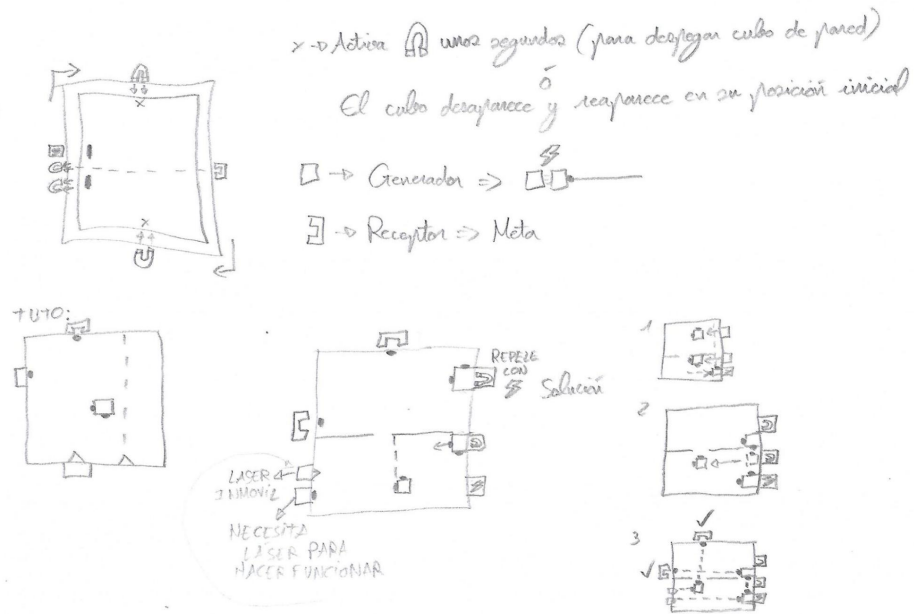 x → Activa unos segundos (para despegar cubo de pared)
ó
El cubo desaparece y reaparece en su posición inicial
→ Generador ⇒
→ Receptor ⇒ Meta
TUTO:
REPELE
CON
Solución
LASER
INMOVIL
NECESITA
LASER PARA
HACER FUNCIONAR
1
2
3